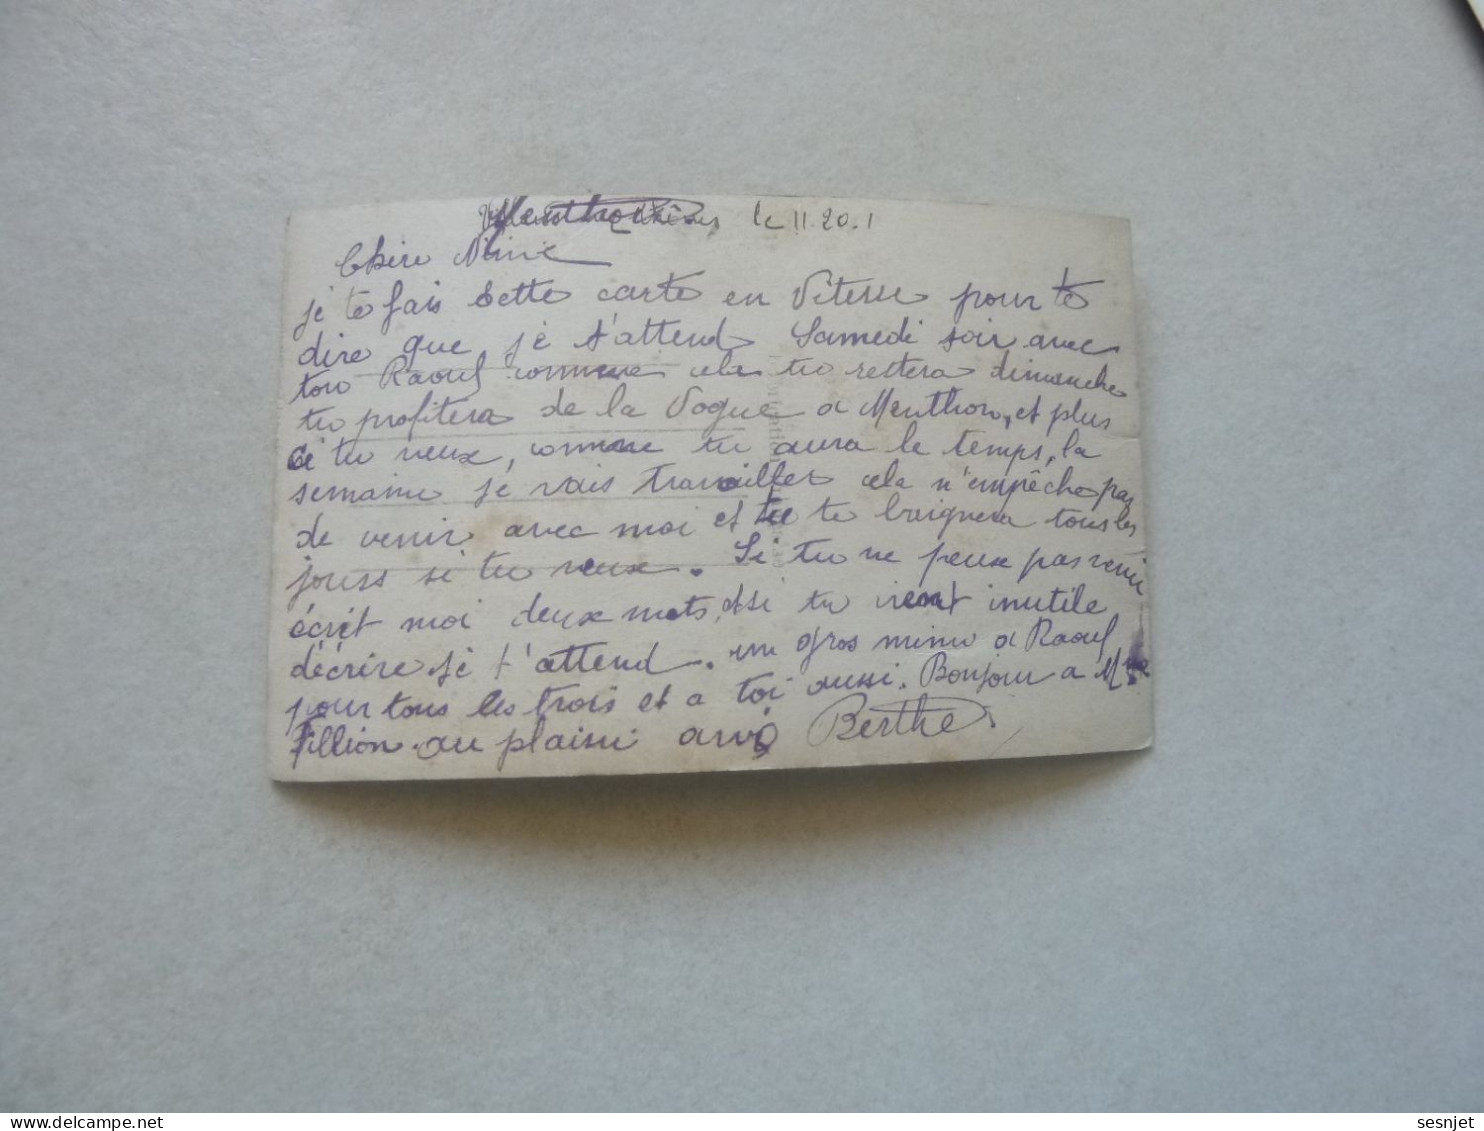 Menthon le 11.20.1
Chère Nini
je te fais Cette carte en Vitesse pour te
dire que je t'attend Samedi soir avec
ton Raoul comme cela tu restera dimanche
tu profitera de la Vogue a Menthon, et plus
si tu veux, comme tu aura le temps, la
semaine je vais travailler cela n'empêche pas
de venir avec moi et tu te baignera tous les
jours si tu veux. Si tu ne peux pas venir
écrit moi deux mots, et si tu vient inutile
décrire je t'attend. un gros mimi a Raoul
pour tous les trois et a toi aussi. Bonjour a Mme
Fillion. au plaisir Berthe
sesnjet